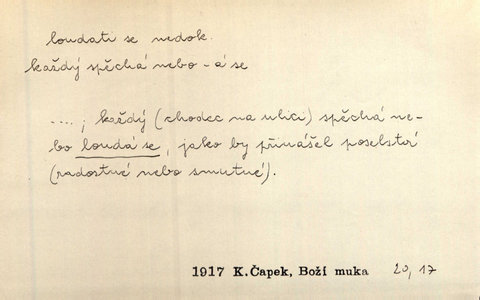 loudati se nedok.
každý spěchá nebo -á se
....; každý (chodec na ulici) spěchá ne-
bo loudá se, jako by přinášel poselství
(radostné nebo smutné).
1917 K.Čapek, Boží muka 20, 17